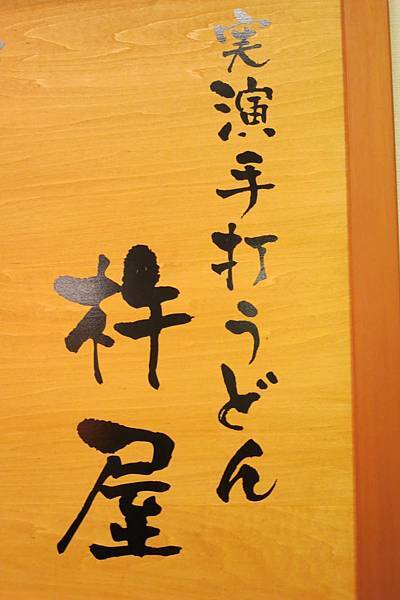 実演手打うどん
杵屋